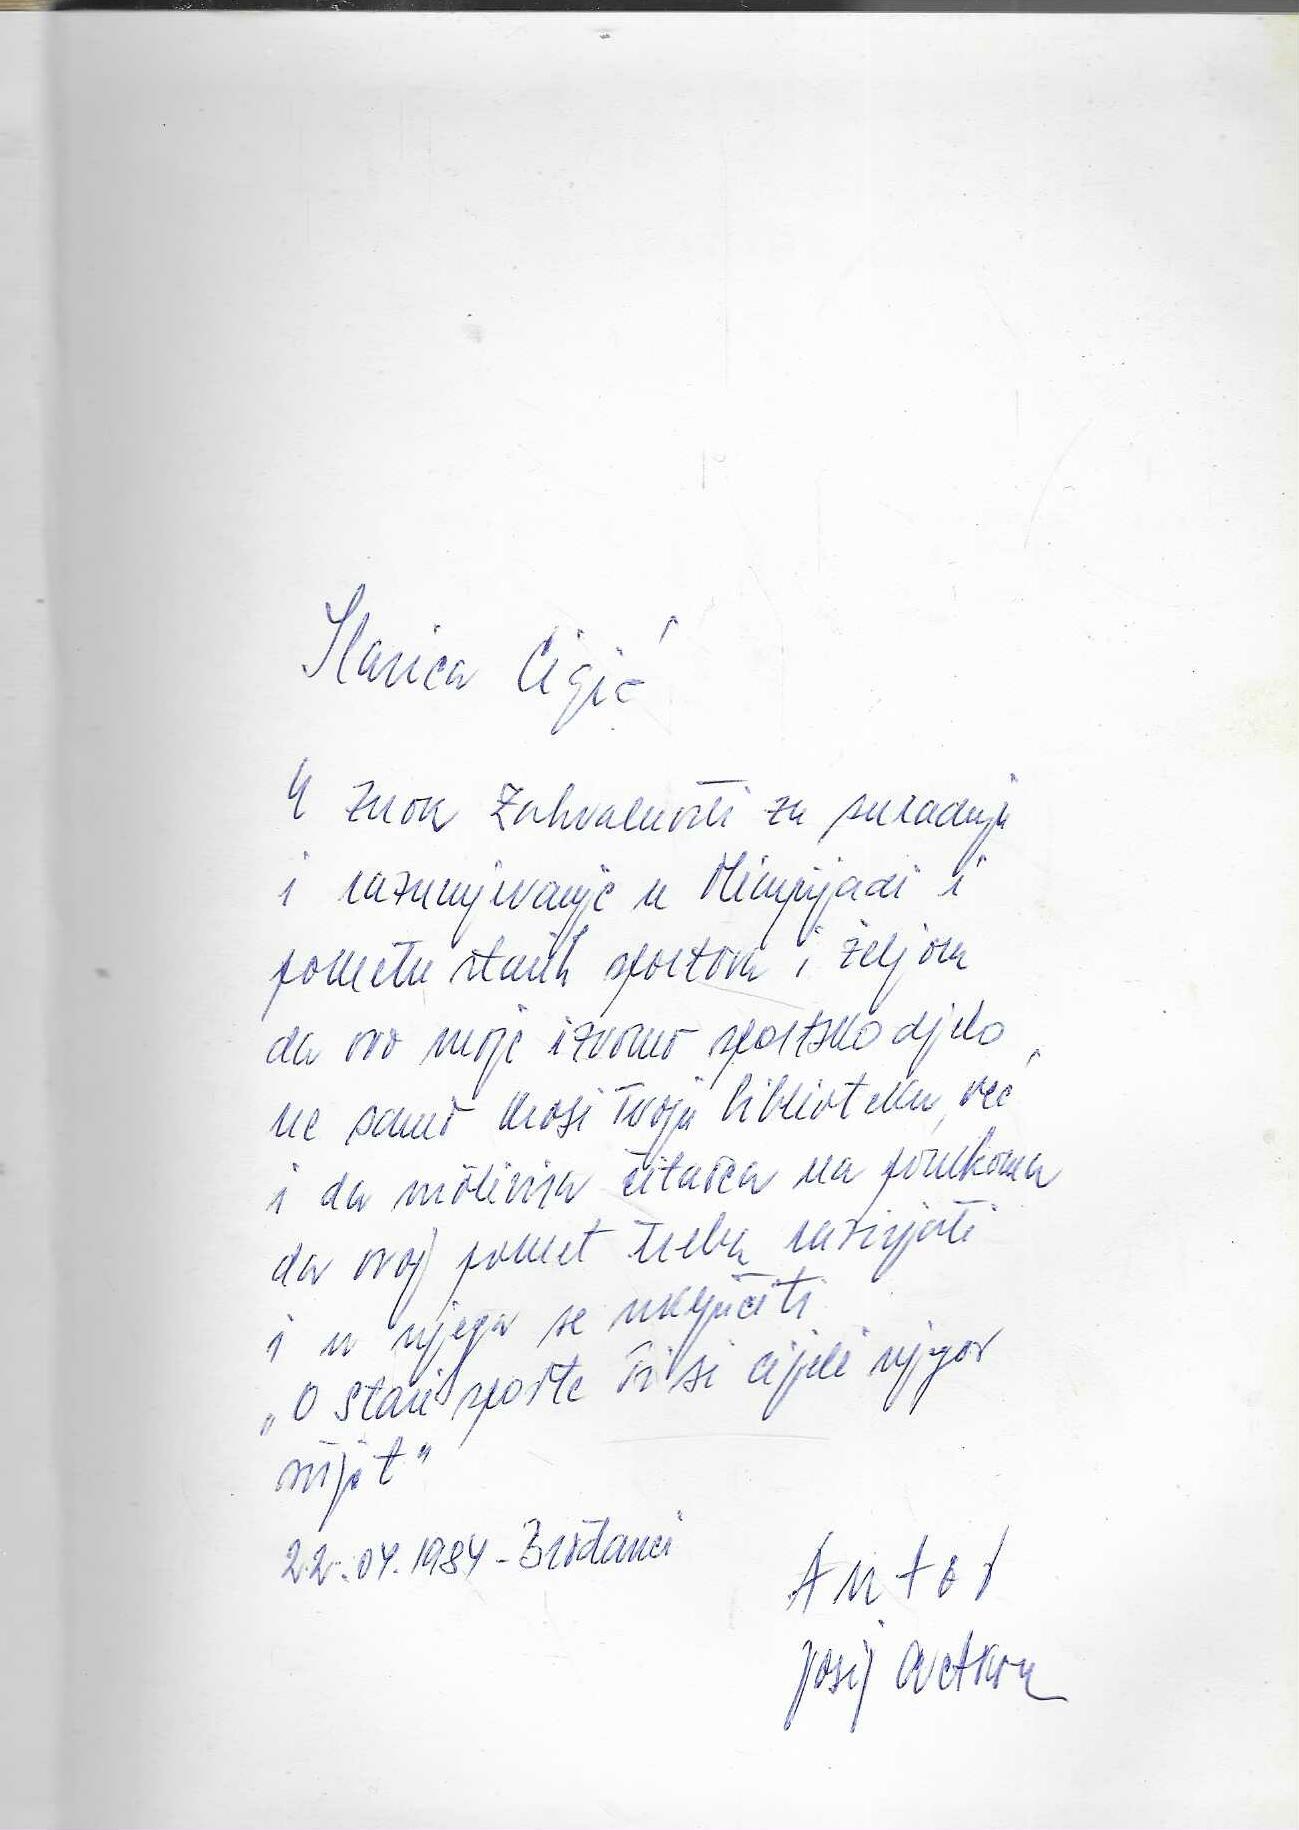 Slavica Cigić
U znak zahvalnosti za suradnju
i razumjevanje u Olimpijadi i
pokretu starih sportova i željom
da ovo moje izvorno sportsko djelo
ne samo krasi tvoju biblioteku, već
i da čitaoca na
da ovaj pokret treba razvijati
i u njega se uključiti
„O stari sporte ti si cijeli njegov
svijet"
22.04.1984 - Brođanci
Autor
Josip Cvetković